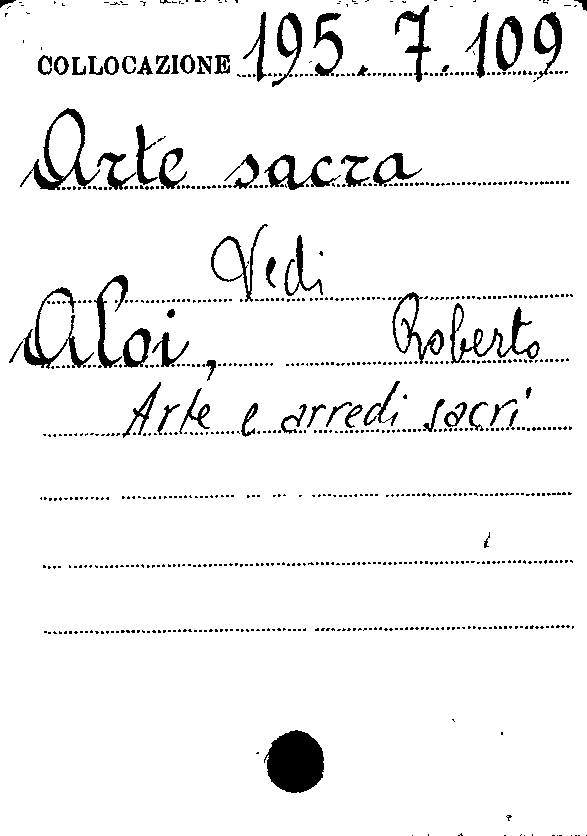 COLLOCAZIONE 195.7.109
Arte sacra
Vedi
Aloi, Roberto
Arte e arredi sacri